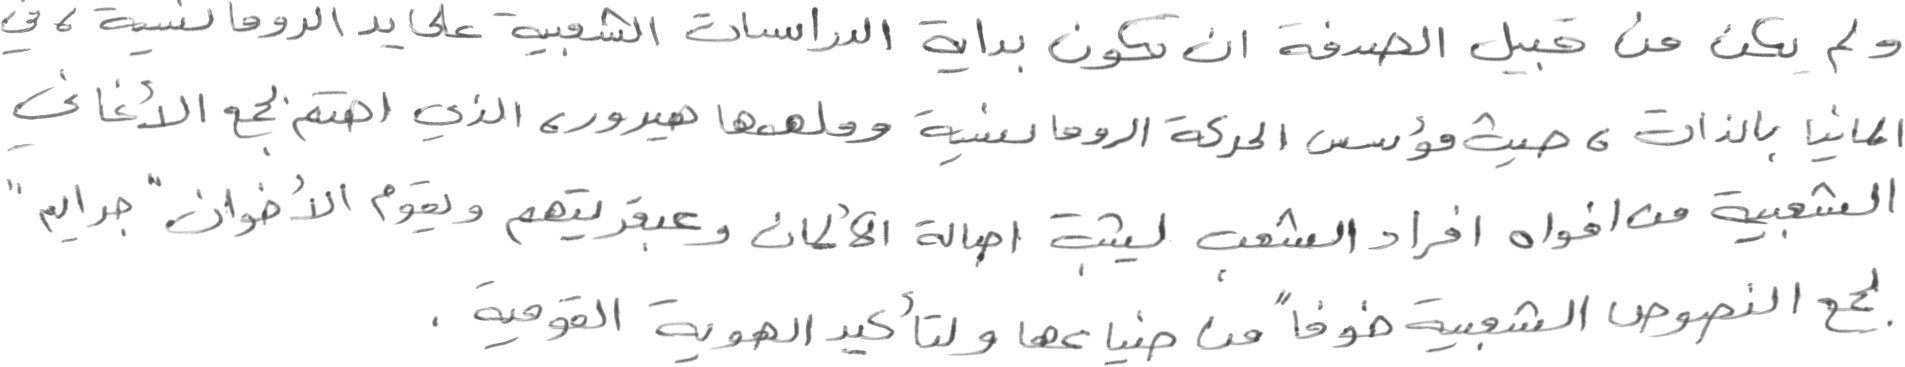 ولم يكن من قبيل الصدفة ان تكون بداية الدراسات الشعبية على يد الرومانسية ، في
المانيا بالذات ، حيث مؤسس الحركة الرومانسية وملهمها هيردور ، الذي اهتم بجمع الأغاني
الشعبية من افواه افراد الشعب ليثبت اصالة الألمان وعبقريتهم ويقوم الأخوان " جرايم "
بجمع النصوص الشعبية خوفاً من ضياعها ولتأكيد الهوية القومية .